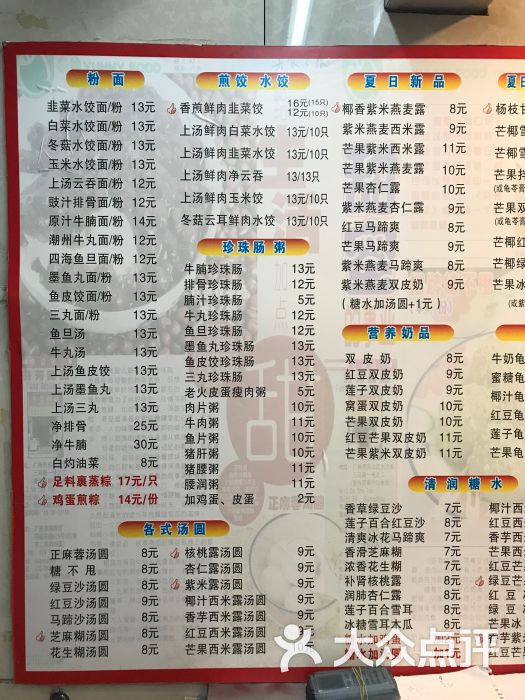 粉 面
韭菜水饺面/粉 13元
白菜水饺面/粉 13元
冬菇水饺面/粉 13元
玉米水饺面/粉 13元
上汤云吞面/粉 12元
豉汁排骨面/粉 12元
原汁牛腩面/粉 14元
潮州牛丸面/粉 12元
四海鱼旦面/粉 12元
墨鱼丸面/粉 13元
鱼皮饺面/粉 13元
三丸面/粉 13元
鱼旦汤 13元
牛丸汤 13元
上汤鱼皮饺 13元
上汤墨鱼丸 13元
上汤三丸 13元
净排骨 25元
净牛腩 30元
白灼油菜 8元
足料裹蒸粽 17元/只
鸡蛋煎粽 14元/份
煎饺 水饺
香煎鲜肉韭菜饺 16元(15只)
12元(10只)
上汤鲜肉白菜水饺 13元/10只
上汤鲜肉韭菜水饺 13元/10只
上汤鲜肉净云吞 13/13只
上汤鲜肉玉米饺 13元/10只
冬菇云耳鲜肉水饺 13元/10只
珍珠肠粥
牛腩珍珠肠 13元
排骨珍珠肠 12元
腩汁珍珠肠 5元
牛丸珍珠肠 12元
鱼旦珍珠肠 12元
墨鱼丸珍珠肠 13元
鱼皮饺珍珠肠 13元
三丸珍珠肠 13元
老火皮蛋瘦肉粥 5元
肉片粥 10元
牛肉粥 11元
鱼片粥 10元
猪肝粥 10元
猪腰粥 11元
腰润粥 11元
加鸡蛋、皮蛋 2元
各式汤圆
正麻蓉汤圆 8元
糖不甩 8元
绿豆沙汤圆 8元
红豆沙汤圆 9元
马蹄沙汤圆 8元
芝麻糊汤圆 8元
花生糊汤圆 8元
核桃露汤圆 9元
杏仁露汤圆 9元
紫米露汤圆 9元
椰汁西米露汤圆 9元
香芋西米露汤圆 9元
红豆西米露汤圆 9元
芒果西米露汤圆
夏日新品
椰香紫米燕麦露 8元
紫米燕麦西米露 9元
芒果紫米西米露 11元
芒果紫米燕麦露 10元
芒果杏仁露 10元
紫米燕麦杏仁露 9元
红豆马蹄爽 8元
芒果马蹄爽 9元
紫米燕麦马蹄爽 8元
紫米燕麦双皮奶 9元
(糖水加汤圆+1元)
营养奶品
双皮奶 8元
红豆双皮奶 9元
莲子双皮奶 9元
窝蛋双皮奶 10元
芒果双皮奶 10元
红豆芒果双皮奶 11元
莲子芒果双皮奶 11元
清润糖水
香草绿豆沙 7元
莲子百合红豆沙 8元
清爽冰花马蹄爽 7元
香滑芝麻糊 7元
浓香花生糊 7元
补肾核桃露 8元
润肺杏仁露 8元
莲子百合雪耳 8元
冰糖雪耳木瓜 8元
夏日
杨枝甘
芒椰雪
芒椰西
芒果
(或龟苓膏
芒果双
(或
芒椰红
芒椰绿
芒果冰
(或紫
牛奶龟
蜜糖龟
椰汁龟
红豆龟
莲子龟
芒果龟
椰汁西
香芋西
红豆西
芒果西
绿豆
大众点评